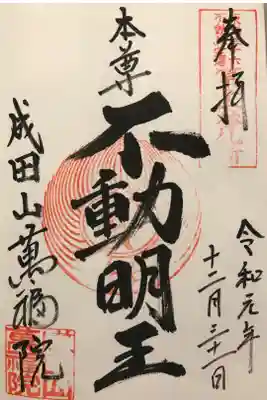 奉拝
令和元年
十二月三十一日
本尊
不動明王
成田山萬福院